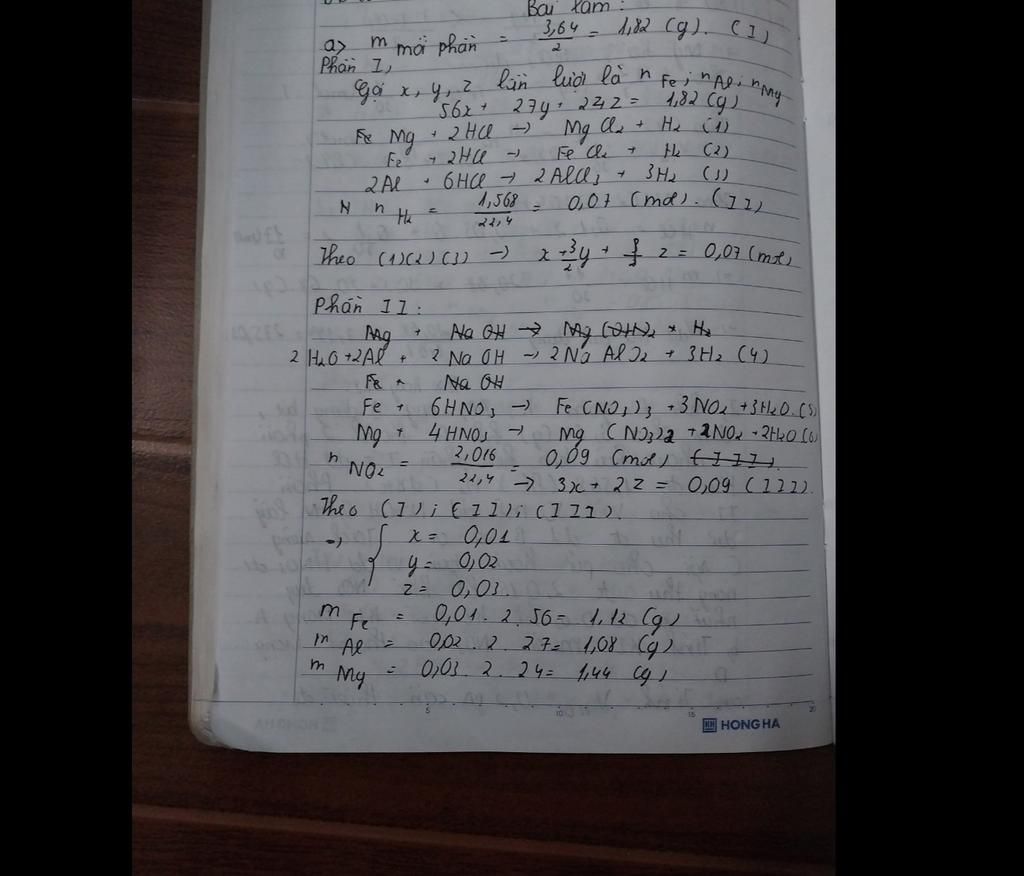 Bài làm:
a> m mỗi phần = 3,64/2 = 1,82 (g). (I)
Phần I,
Gọi x, y, z lần lượt là n Fe; n Al; n Mg
56x + 27y + 24z = 1,82 (g)
Fe Mg + 2HCl → MgCl2 + H2 (1)
Fe + 2HCl → FeCl2 + H2 (2)
2Al + 6HCl → 2AlCl3 + 3H2 (3)
N n H2 = 1,568/22,4 = 0,07 (mol). (II)
Theo (1)(2)(3) → x + 3/2 y + z = 0,07 (mol)
Phần II:
Mg + NaOH → Mg(OH)2 + H2
2H2O + 2Al + 2NaOH → 2NaAlO2 + 3H2 (4)
Fe + NaOH
Fe + 6HNO3 → Fe(NO3)3 + 3NO2 + 3H2O (5)
Mg + 4HNO3 → Mg(NO3)2 + 2NO2 + 2H2O (6)
n NO2 = 2,016/22,4 = 0,09 (mol) (III).
→ 3x + 2z = 0,09 (III)
Theo (I); (II); (III).
→ { x = 0,01
y = 0,02
z = 0,03.
m Fe = 0,01 . 2 . 56 = 1,12 (g)
m Al = 0,02 . 2 . 27 = 1,08 (g)
m Mg = 0,03 . 2 . 24 = 1,44 (g)
5 10 15 20
HH HONG HA